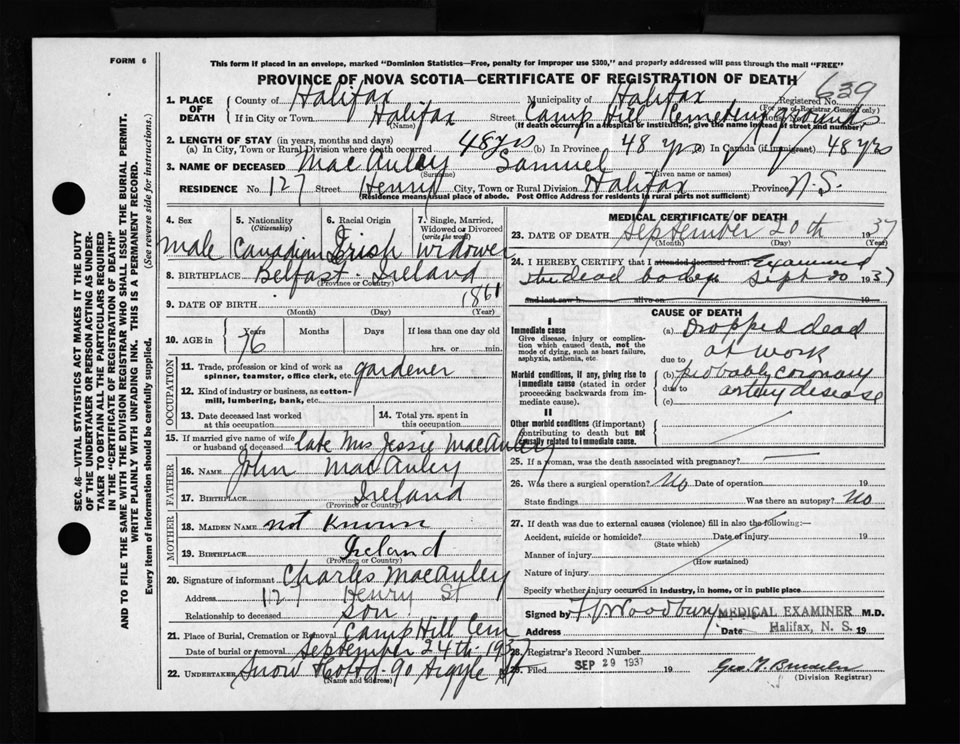 FORM 6
This form if placed in an envelope, marked "Dominion Statistics—Free, penalty for improper use $300," and properly addressed will pass through the mail "FREE"
PROVINCE OF NOVA SCOTIA—CERTIFICATE OF REGISTRATION OF DEATH
639
1. PLACE OF DEATH County of Halifax Municipality of Halifax Registered No.
(For use of Registrar General only)
If in City or Town Halifax Street Camp Hill Cemetery Grounds House No.
(Name) (If death occurred in a hospital or institution, give the name instead of street and number)
2. LENGTH OF STAY (in years, months and days)
(a) In City, Town or Rural Division where death occurred 48 yrs (b) In Province 48 yrs In Canada (if immigrant) 48 yrs
3. NAME OF DECEASED MacAuley Samuel
(Surname) (Given name or names)
RESIDENCE No. 127 Street Henry City, Town or Rural Division Halifax Province N.S.
(Residence means usual place of abode. Post Office Address for residents in rural parts not sufficient)
4. Sex 5. Nationality (Citizenship) 6. Racial Origin 7. Single, Married, Widowed or Divorced (write the word)
Male Canadian Irish Widower
8. BIRTHPLACE Belfast - Ireland
(Province or Country)
9. DATE OF BIRTH 1861
(Month) (Day) (Year)
10. AGE in Years Months Days If less than one day old
76 hrs. or min.
OCCUPATION
11. Trade, profession or kind of work as spinner, teamster, office clerk, etc. gardener
12. Kind of industry or business, as cotton-mill, lumbering, bank, etc.
13. Date deceased last worked at this occupation 14. Total yrs. spent in this occupation
15. If married give name of wife or husband of deceased late Mrs Jessie MacAuley
FATHER
16. NAME John MacAuley
17. BIRTHPLACE Ireland
(Province or Country)
MOTHER
18. MAIDEN NAME not known
19. BIRTHPLACE Ireland
(Province or Country)
20. Signature of informant Charles MacAuley
Address 127 Henry St
Relationship to deceased son
21. Place of Burial, Cremation or Removal Camp Hill Cem
Date of burial or removal September 24th 1937
22. UNDERTAKER Snow 90 Argyle St
(Name and address)
MEDICAL CERTIFICATE OF DEATH
23. DATE OF DEATH September 20th 1937
(Month) (Day) (Year)
24. I HEREBY CERTIFY that I attended deceased from Examined
the dead body Sept 20 1937
and last saw h alive on 19
CAUSE OF DEATH
I
Immediate cause (a) Dropped dead
Give disease, injury or complication which caused death, not the mode of dying, such as heart failure, asphyxia, asthenia, etc. at work
due to
Morbid conditions, if any, giving rise to immediate cause (stated in order proceeding backwards from immediate cause). (b) probably coronary
due to artery disease
(c)
II
Other morbid conditions (if important) contributing to death but not causally related to immediate cause.
25. If a woman, was the death associated with pregnancy?
26. Was there a surgical operation? No Date of operation 19
State findings Was there an autopsy? No
27. If death was due to external causes (violence) fill in also the following:—
Accident, suicide or homicide? Date of injury 19
(State which)
Manner of injury
(How sustained)
Nature of injury
Specify whether injury occurred in industry, in home, or in public place
Signed by Woodbury MEDICAL EXAMINER M.D.
Address Date Halifax, N. S. 19
28. Registrar's Record Number
29. Filed SEP 29 1937 19
(Division Registrar)
SEC. 46—VITAL STATISTICS ACT MAKES IT THE DUTY
OF THE UNDERTAKER OR PERSON ACTING AS UNDER-
TAKER TO OBTAIN ALL THE PARTICULARS REQUIRED
IN THE "CERTIFICATE OF REGISTRATION OF DEATH"
AND TO FILE THE SAME WITH THE DIVISION REGISTRAR WHO SHALL ISSUE THE BURIAL PERMIT.
WRITE PLAINLY WITH UNFADING INK. THIS IS A PERMANENT RECORD.
Every item of information should be carefully supplied. (See reverse side for instructions.)